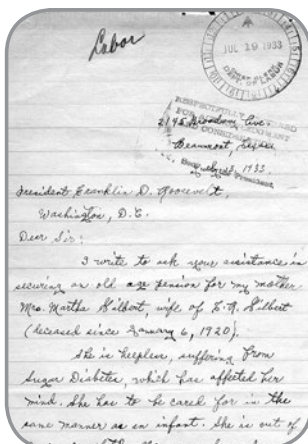 Labor
JUL 19 1933
DEPT. OF LABOR
RESPECTFULLY
FOR
CONSIDERATION
2195 Avenue
Beaumont, Texas
1933.
President Franklin D. Roosevelt,
Washington, D.C.
Dear Sir:
I write to ask your assistance in
securing an old age pension for my mother
Mrs. Martha Gilbert, wife of Gilbert
(deceased since January 6, 1920).
She is helpless, suffering from
Sugar Diabetes, which has affected her
mind. She has to be cared for in the
same manner as an infant. She is out of